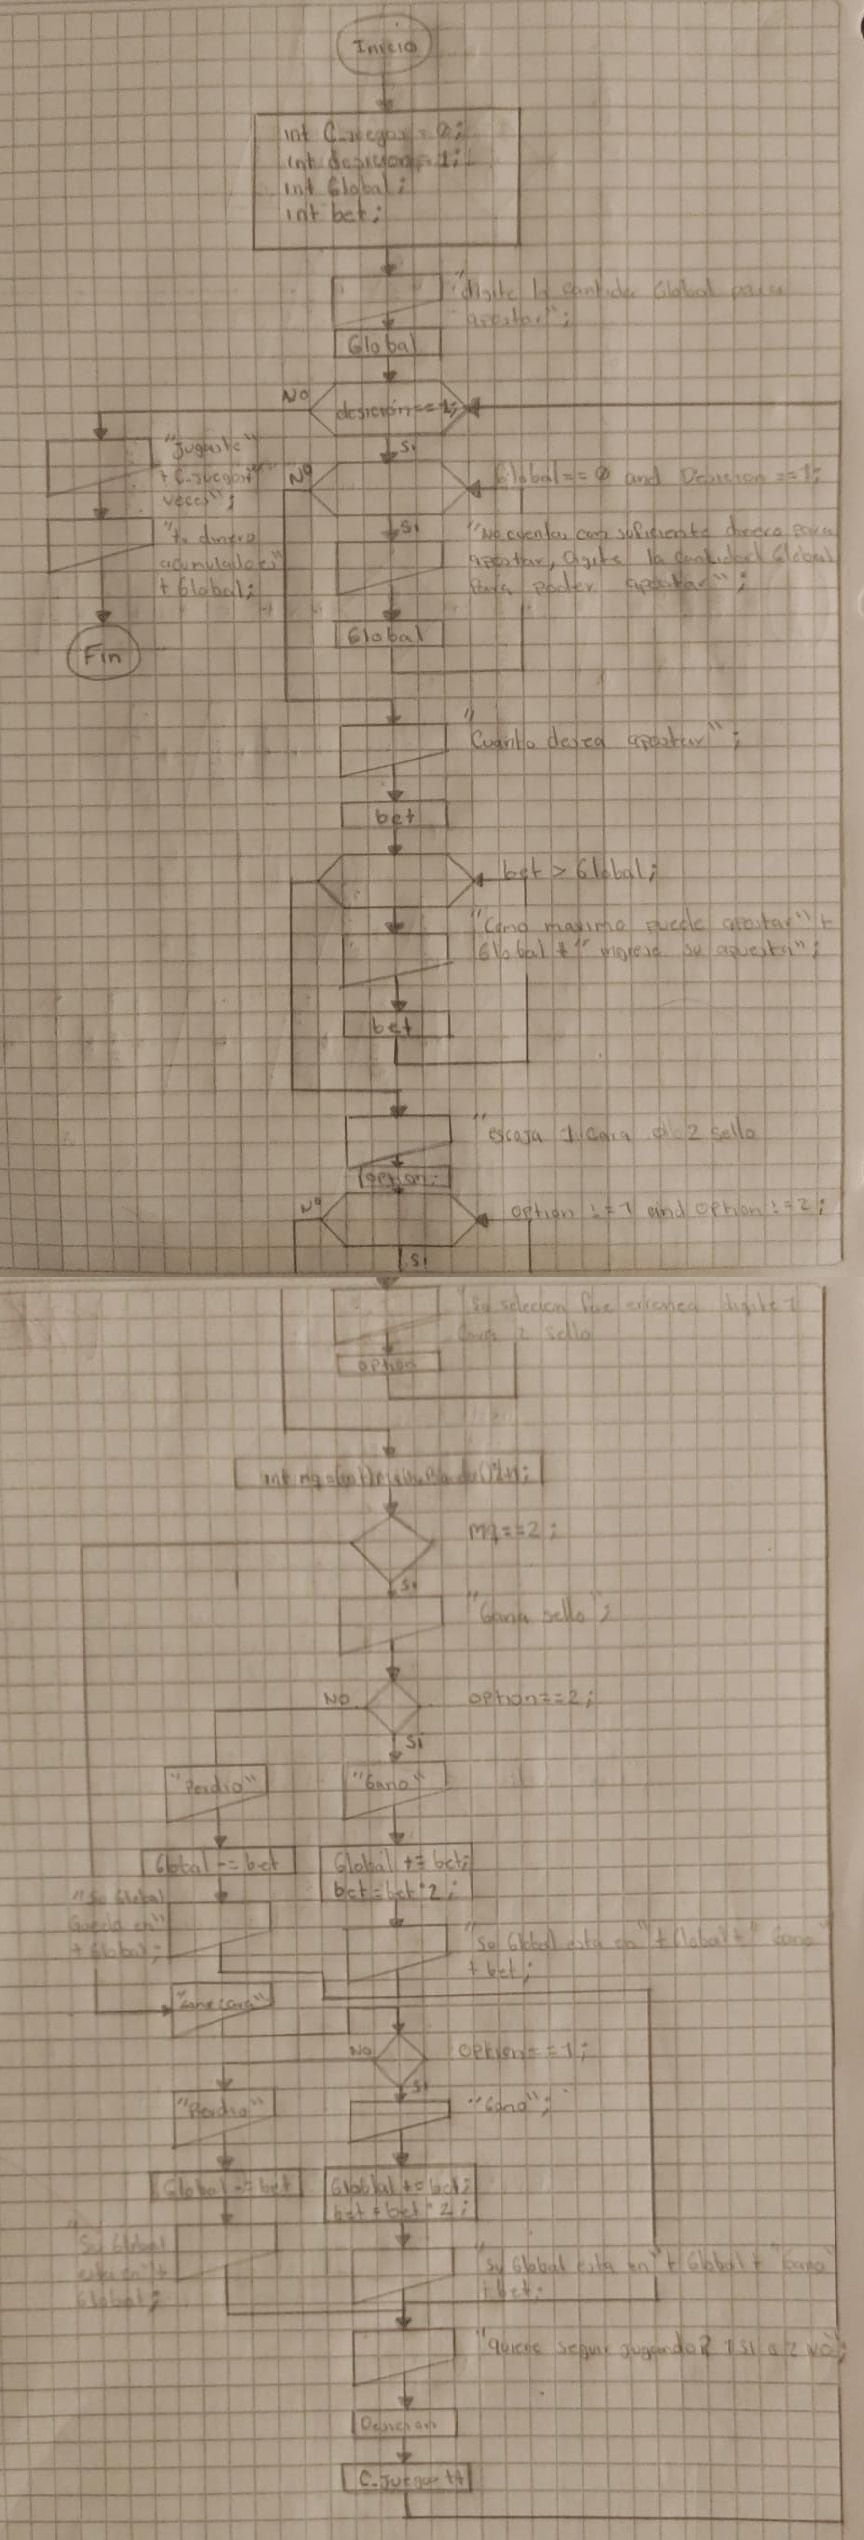 Inicio
int C.juegos = 0;
int desicion = 1;
int Global;
int bet;
"digite la cantidad Global para
apostar";
Global
NO
desición == 1;
Si
"Jugaste"
+ C.juegos + "
veces";
NO
Global == 0 and Desicion == 1;
Si
"No cuentas con suficiente dinero para
apostar, digite la cantidad Global
para poder apostar";
"tu dinero
acumulado es"
+ Global;
Global
Fin
"Cuanto desea apostar";
bet
bet > Global;
"Como maximo puede apostar" +
Global + " ingrese su apuesta";
bet
"escoja 1 Cara o 2 sello
option;
NO
option != 1 and option != 2;
Si
"Su selecion fue erronea digite 1
Cara 2 sello
option
mq == 2;
Si
"Gana sello";
NO
option == 2;
Si
"Perdio"
"Gano"
Global -= bet
Global += bet;
bet = bet * 2;
"Su Global
Queda en"
+ Global;
"Su Global esta en" + Global + " Gano"
+ bet;
"Gane cara"
NO
option == 1;
Si
"Perdio"
"Gano";
Global -= bet
Global += bet;
bet = bet * 2;
"Su Global
esta en" +
Global;
"Su Global esta en" + Global + "Gano"
+ bet;
"quiere seguir jugando? 1 SI o 2 NO;
Desicion
C.Juegos ++